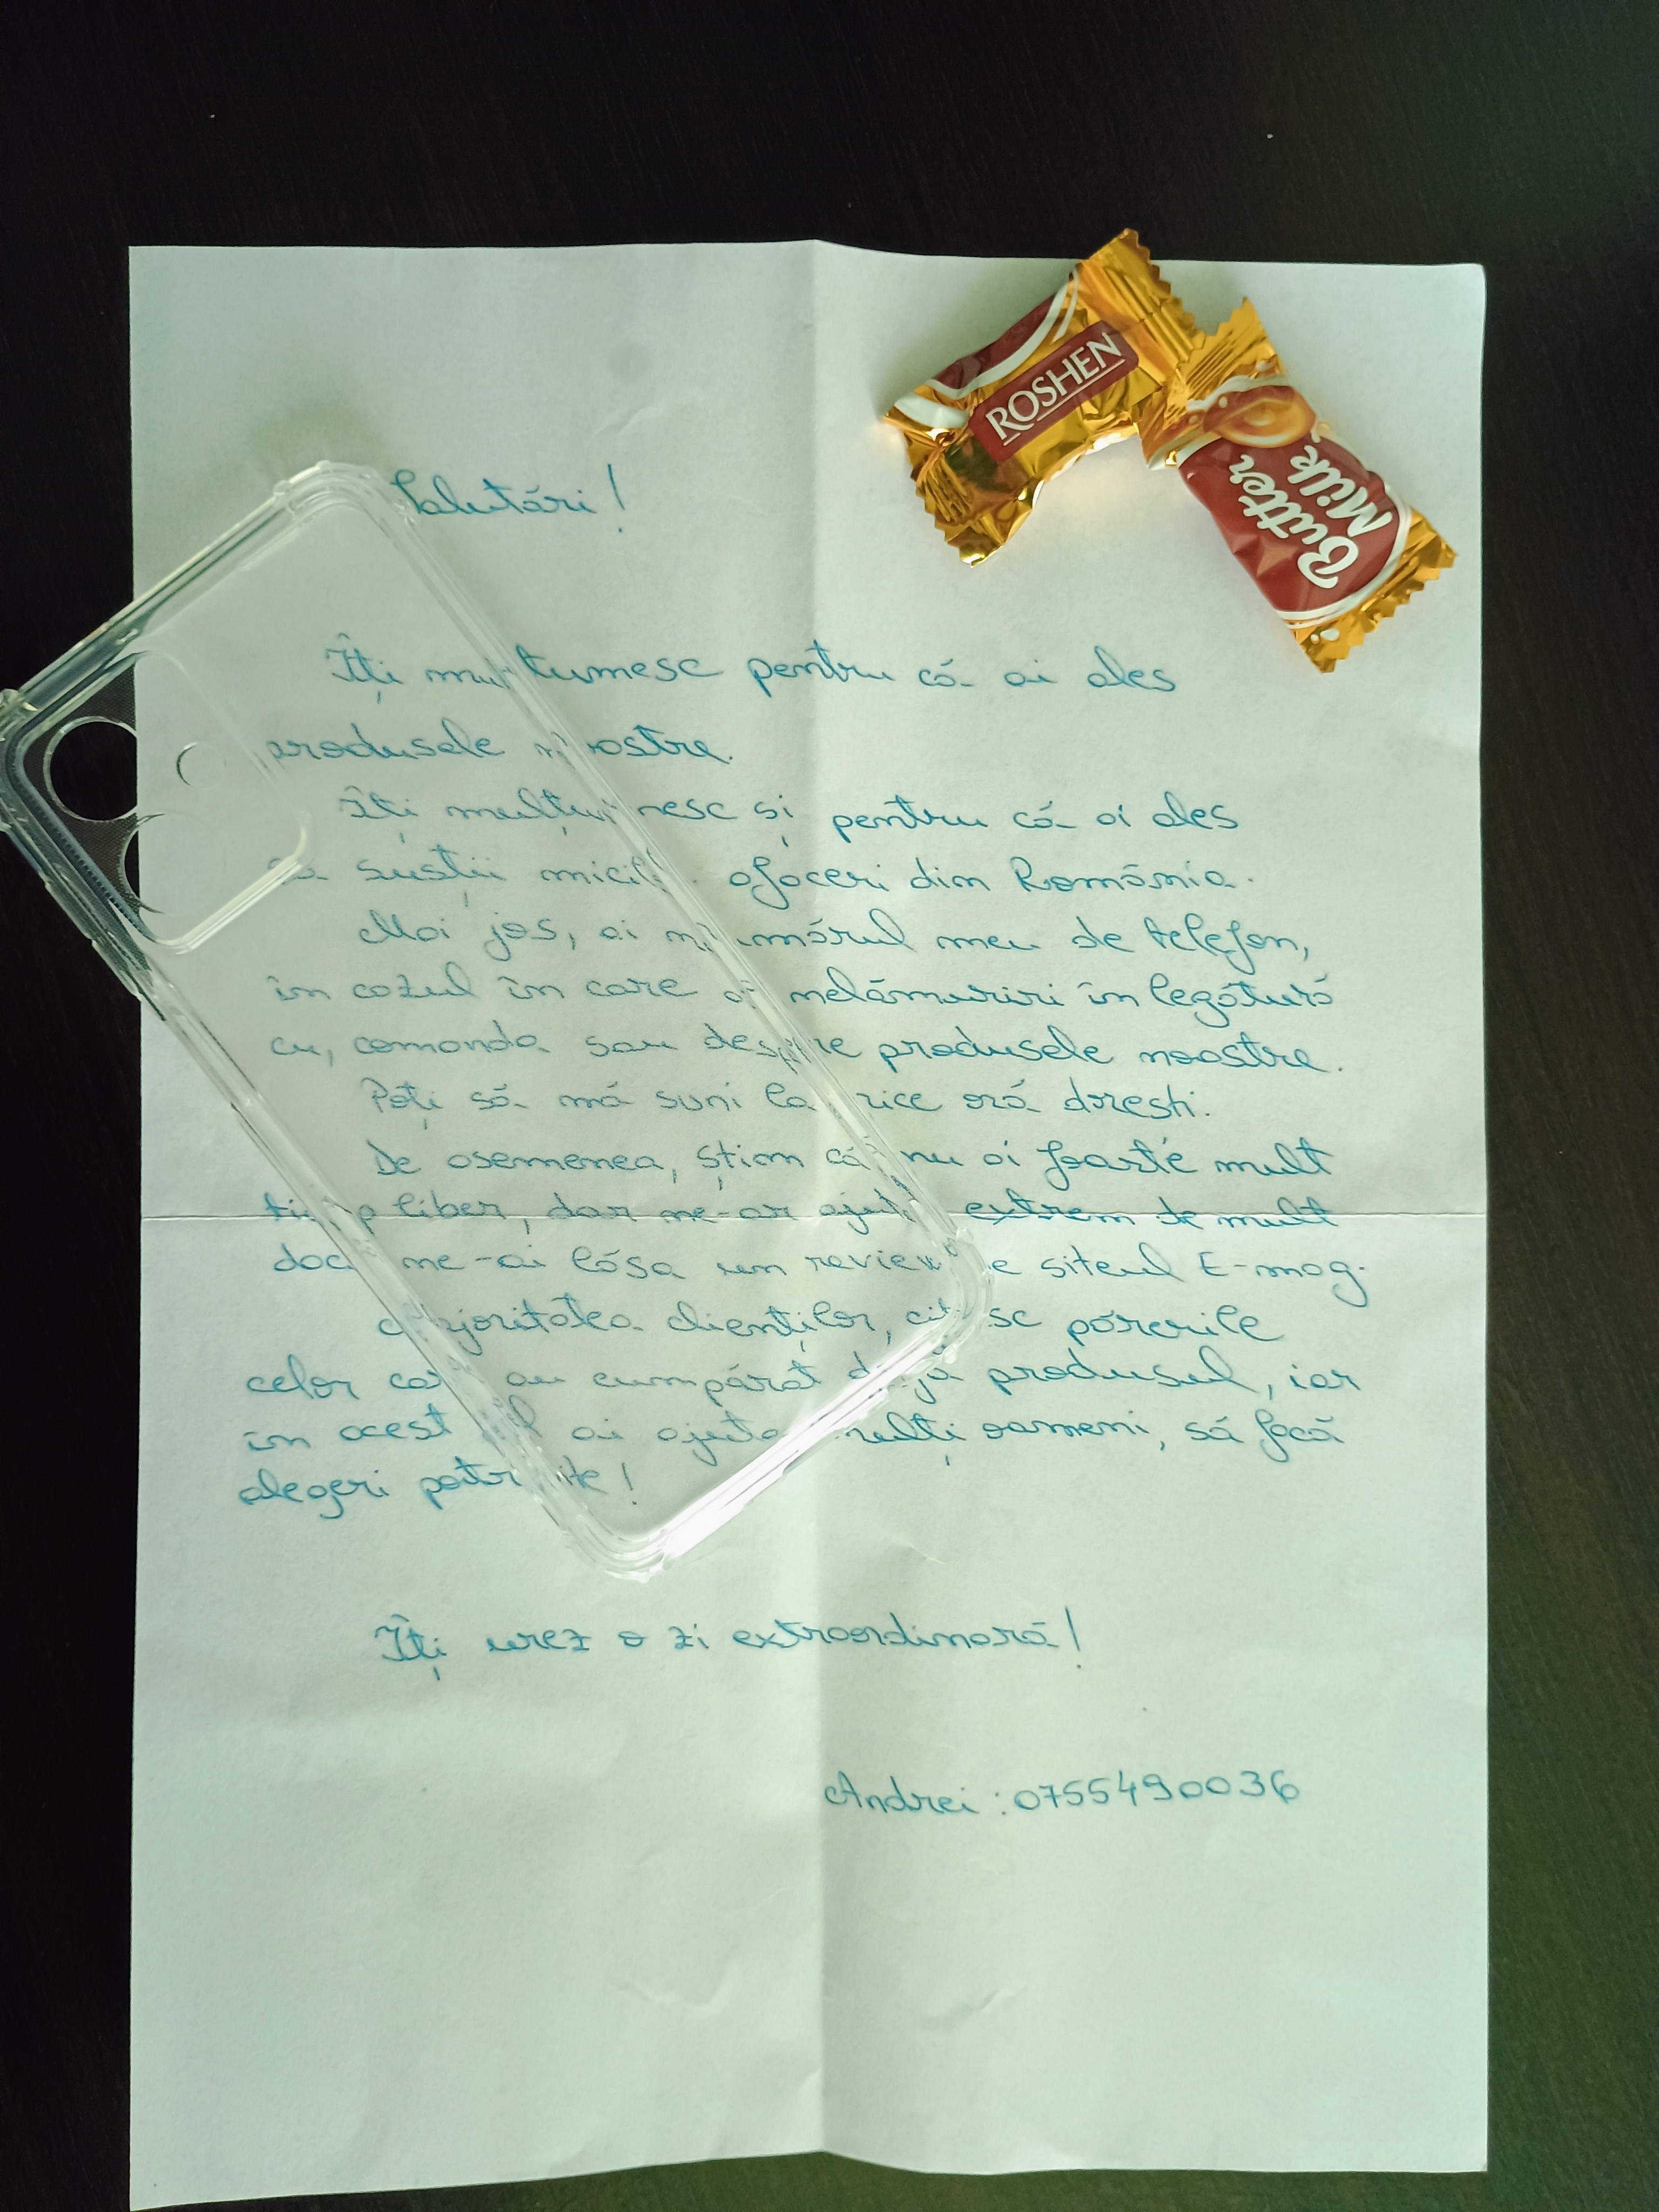 Salutări!
ROSHEN
Butter
Milk
Îți mulțumesc pentru că ai ales
produsele noastre.
Îți mulțumesc și pentru că ai ales
să susții micile afaceri din România.
Mai jos, ai numărul meu de telefon,
în cazul în care ai nelămuriri în legătură
cu, comanda sau despre produsele noastre.
Poți să mă suni la orice oră dorești.
De asemenea, știm că nu ai foarte mult
timp liber, dar ne-ar ajuta extrem de mult
dacă ne-ai lăsa un review pe siteul E-mag.
Majoritatea clienților, citesc părerile
celor care au cumpărat deja produsul, iar
în acest fel ai ajuta mulți oameni, să facă
alegeri potrivite!
Îți urez o zi extraordinară!
Andrei : 0755490036